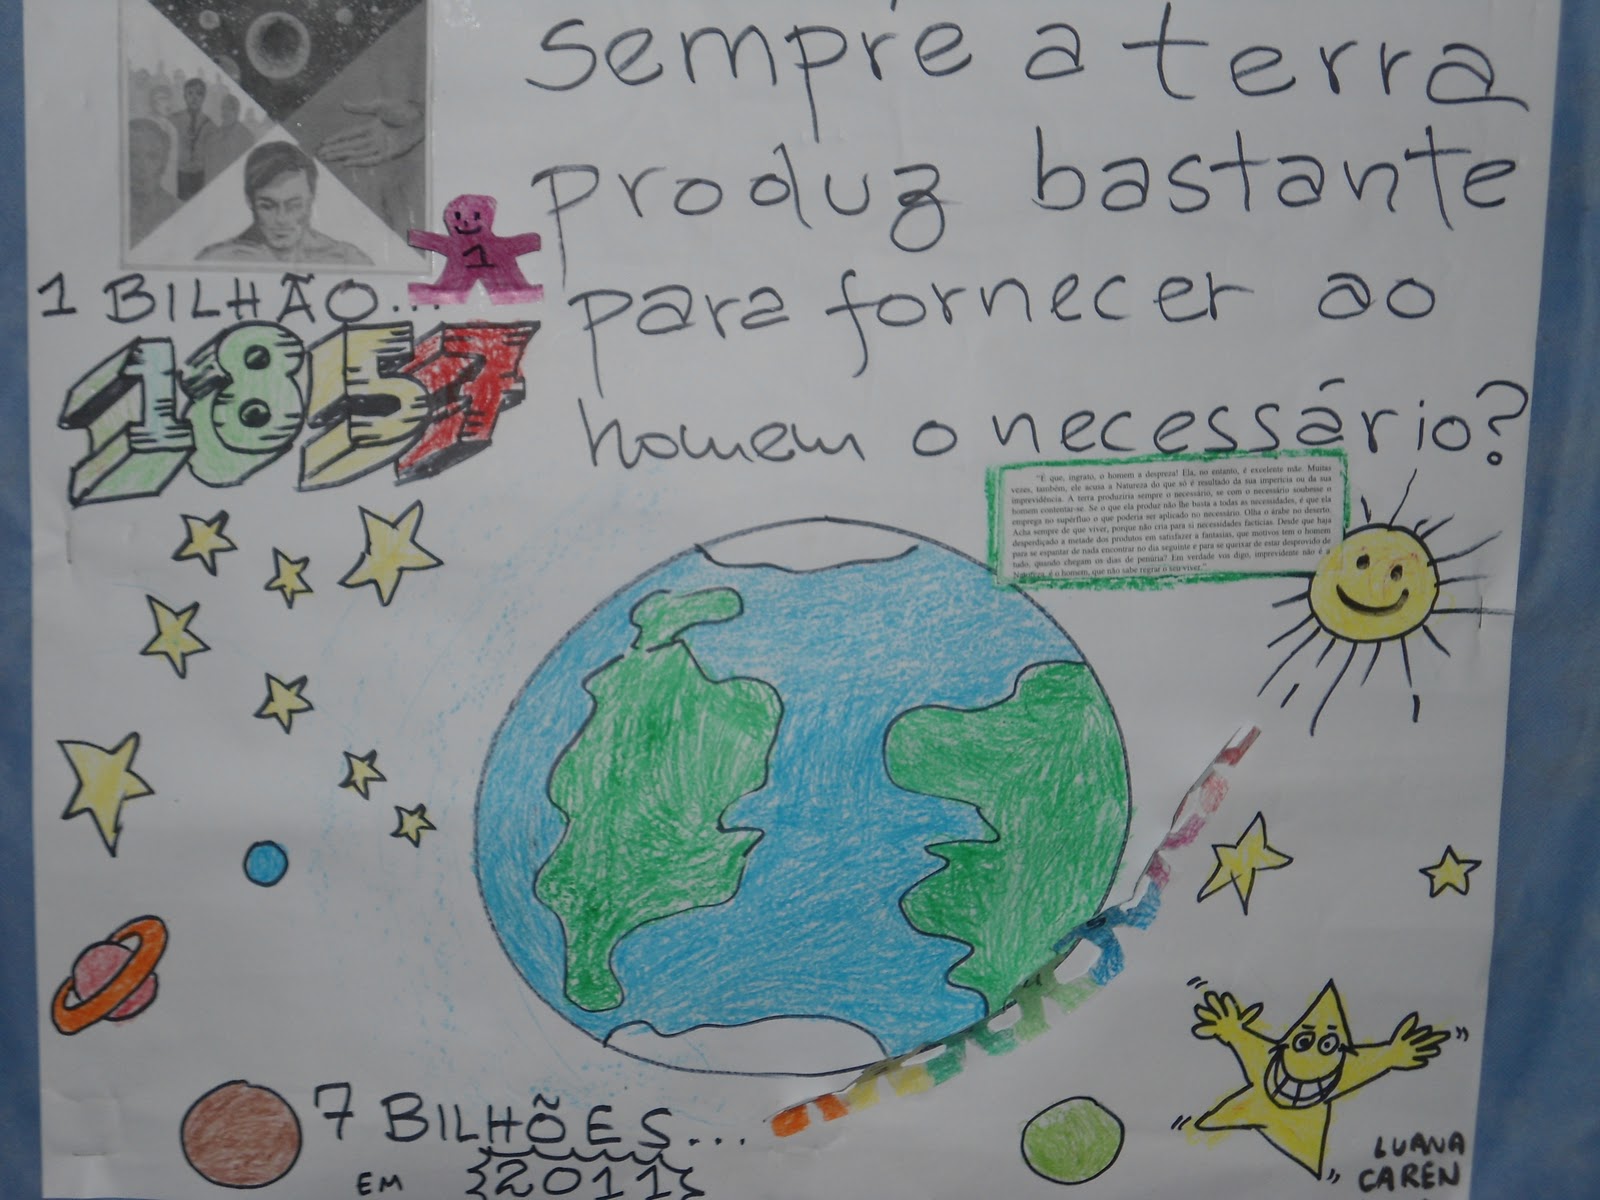 sempre a terra
produz bastante
para fornecer ao
homem o necessário?
1
1 BILHÃO...
1857
"É que, ingrato, o homem a despreza! Ela, no entanto, é excelente mãe. Muitas
vezes, também, ele acusa a Natureza do que só é resultado da sua imperícia ou da sua
imprevidência. A terra produziria sempre o necessário, se com o necessário soubesse o
homem contentar-se. Se o que ela produz não lhe basta a todas as necessidades, é que ela
emprega no supérfluo o que poderia ser aplicado no necessário. Olha o árabe no deserto.
Acha sempre de que viver, porque não cria para si necessidades factícias. Desde que haja
desperdiçado a metade dos produtos em satisfazer a fantasias, que motivos tem o homem
para se espantar de nada encontrar no dia seguinte e para se queixar de estar desprovido de
tudo, quando chegam os dias de penúria? Em verdade vos digo, imprevidente não é a
Natureza, é o homem, que não sabe regrar o seu viver."
7 BILHÕES...
EM 2011
LUANA
CAREN